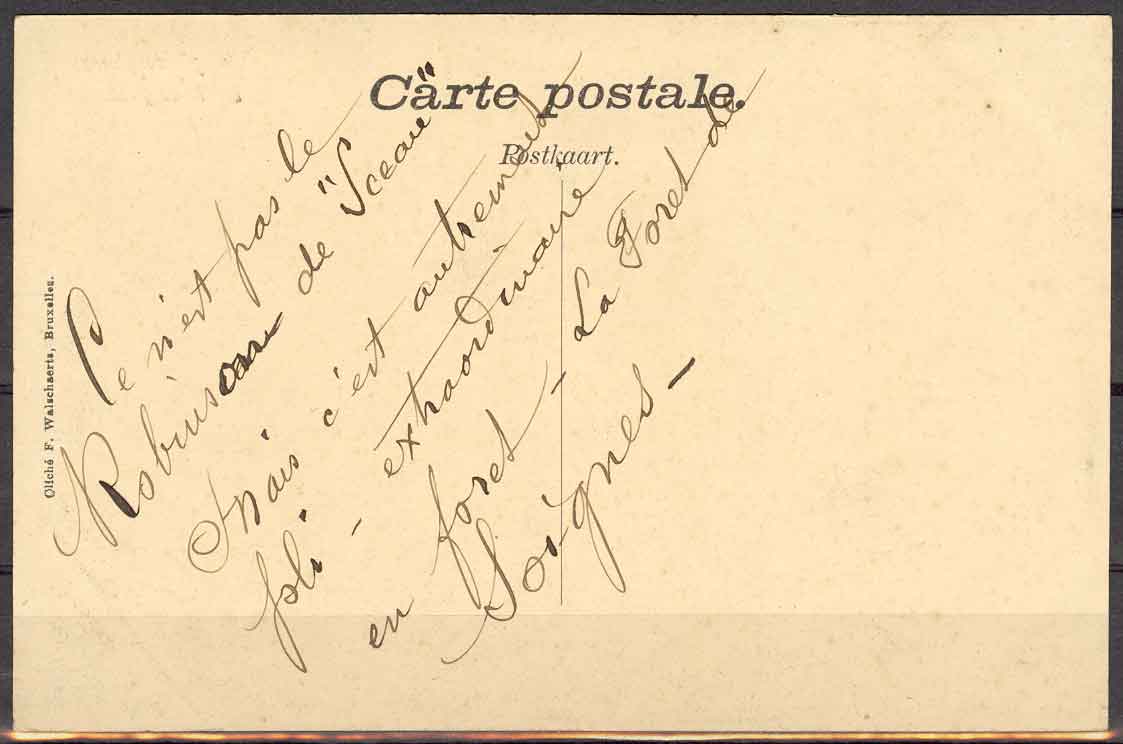 Carte postale.
Postkaart.
Cliché F. Walschaerts, Bruxelles.
Ce n'est pas le
Robinson de "Sceau"
Mais c'est autrement
joli - extraordinaire
en foret - La Foret de
Soignes -